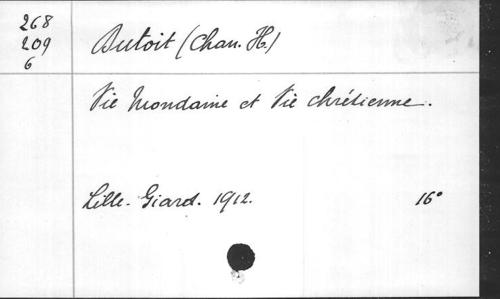 268
209
6
Dutoit (Chan. H.)
Vie Mondaine et Vie chrétienne.
Lille. Giard. 1912. 16°